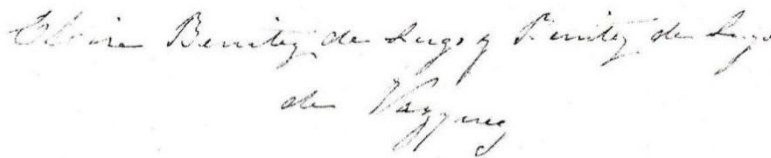 Elvira Benitez de Lugo y Benitez de Lugo
de Vazquez